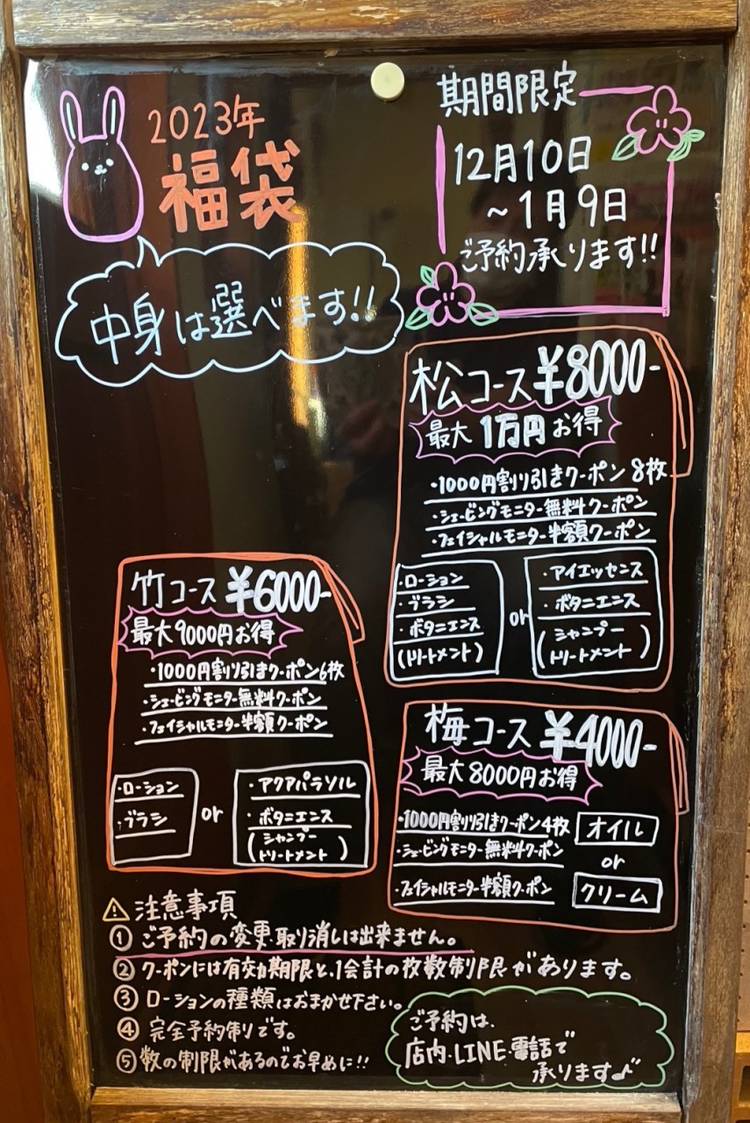 2023年
福袋
中身は選べます!!
期間限定
12月10日
～1月9日
ご予約承ります!!
松コース ¥8000-
最大1万円お得
・1000円割り引きクーポン8枚
・シェービングモニター無料クーポン
・フェイシャルモニター半額クーポン
・ローション
・ブラシ
・ボタニエンス
(トリートメント)
or
・アイエッセンス
・ボタニエンス
(シャンプー
トリートメント)
竹コース ¥6000-
最大9000円お得
・1000円割り引きクーポン6枚
・シェービングモニター無料クーポン
・フェイシャルモニター半額クーポン
・ローション
・ブラシ
or
・アクアパラソル
・ボタニエンス
(シャンプー
トリートメント)
梅コース ¥4000-
最大8000円お得
・1000円割り引きクーポン4枚
・シェービングモニター無料クーポン
・フェイシャルモニター半額クーポン
オイル
or
クリーム
⚠注意事項
①ご予約の変更、取り消しは出来ません。
②クーポンには有効期限と、1会計の枚数制限があります。
③ローションの種類はおまかせ下さい。
④完全予約制りです。
⑤数の制限があるのでお早めに!!
ご予約は、
店内・LINE・電話で
承ります♪